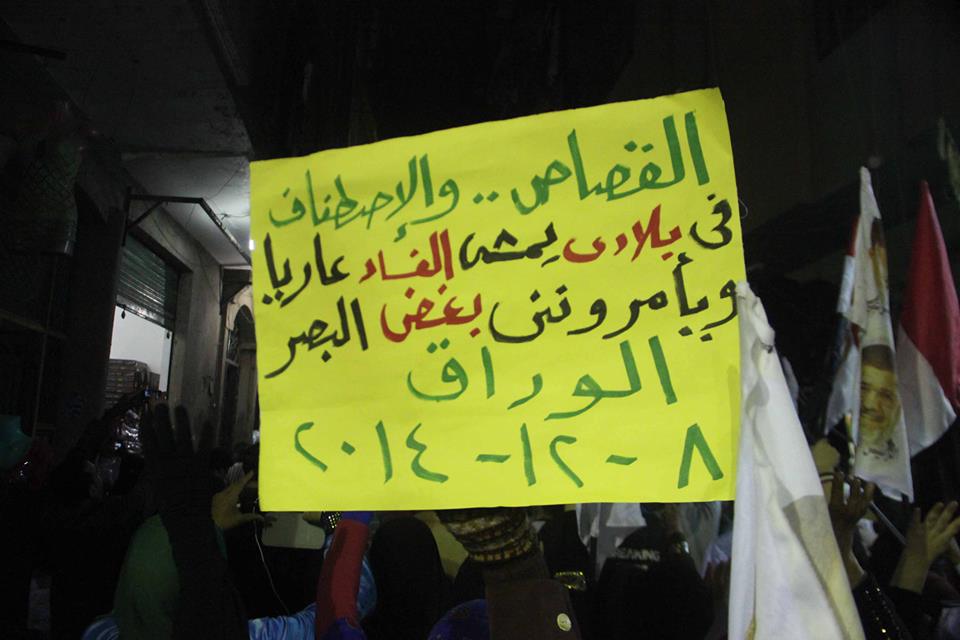 القصاص .. والإصطفاف
فى بلادى يمشى الفساد عاريا
ويأمروننى بغض البصر
الوراق
٨ -١٢ -٢٠١٤
BREAKING